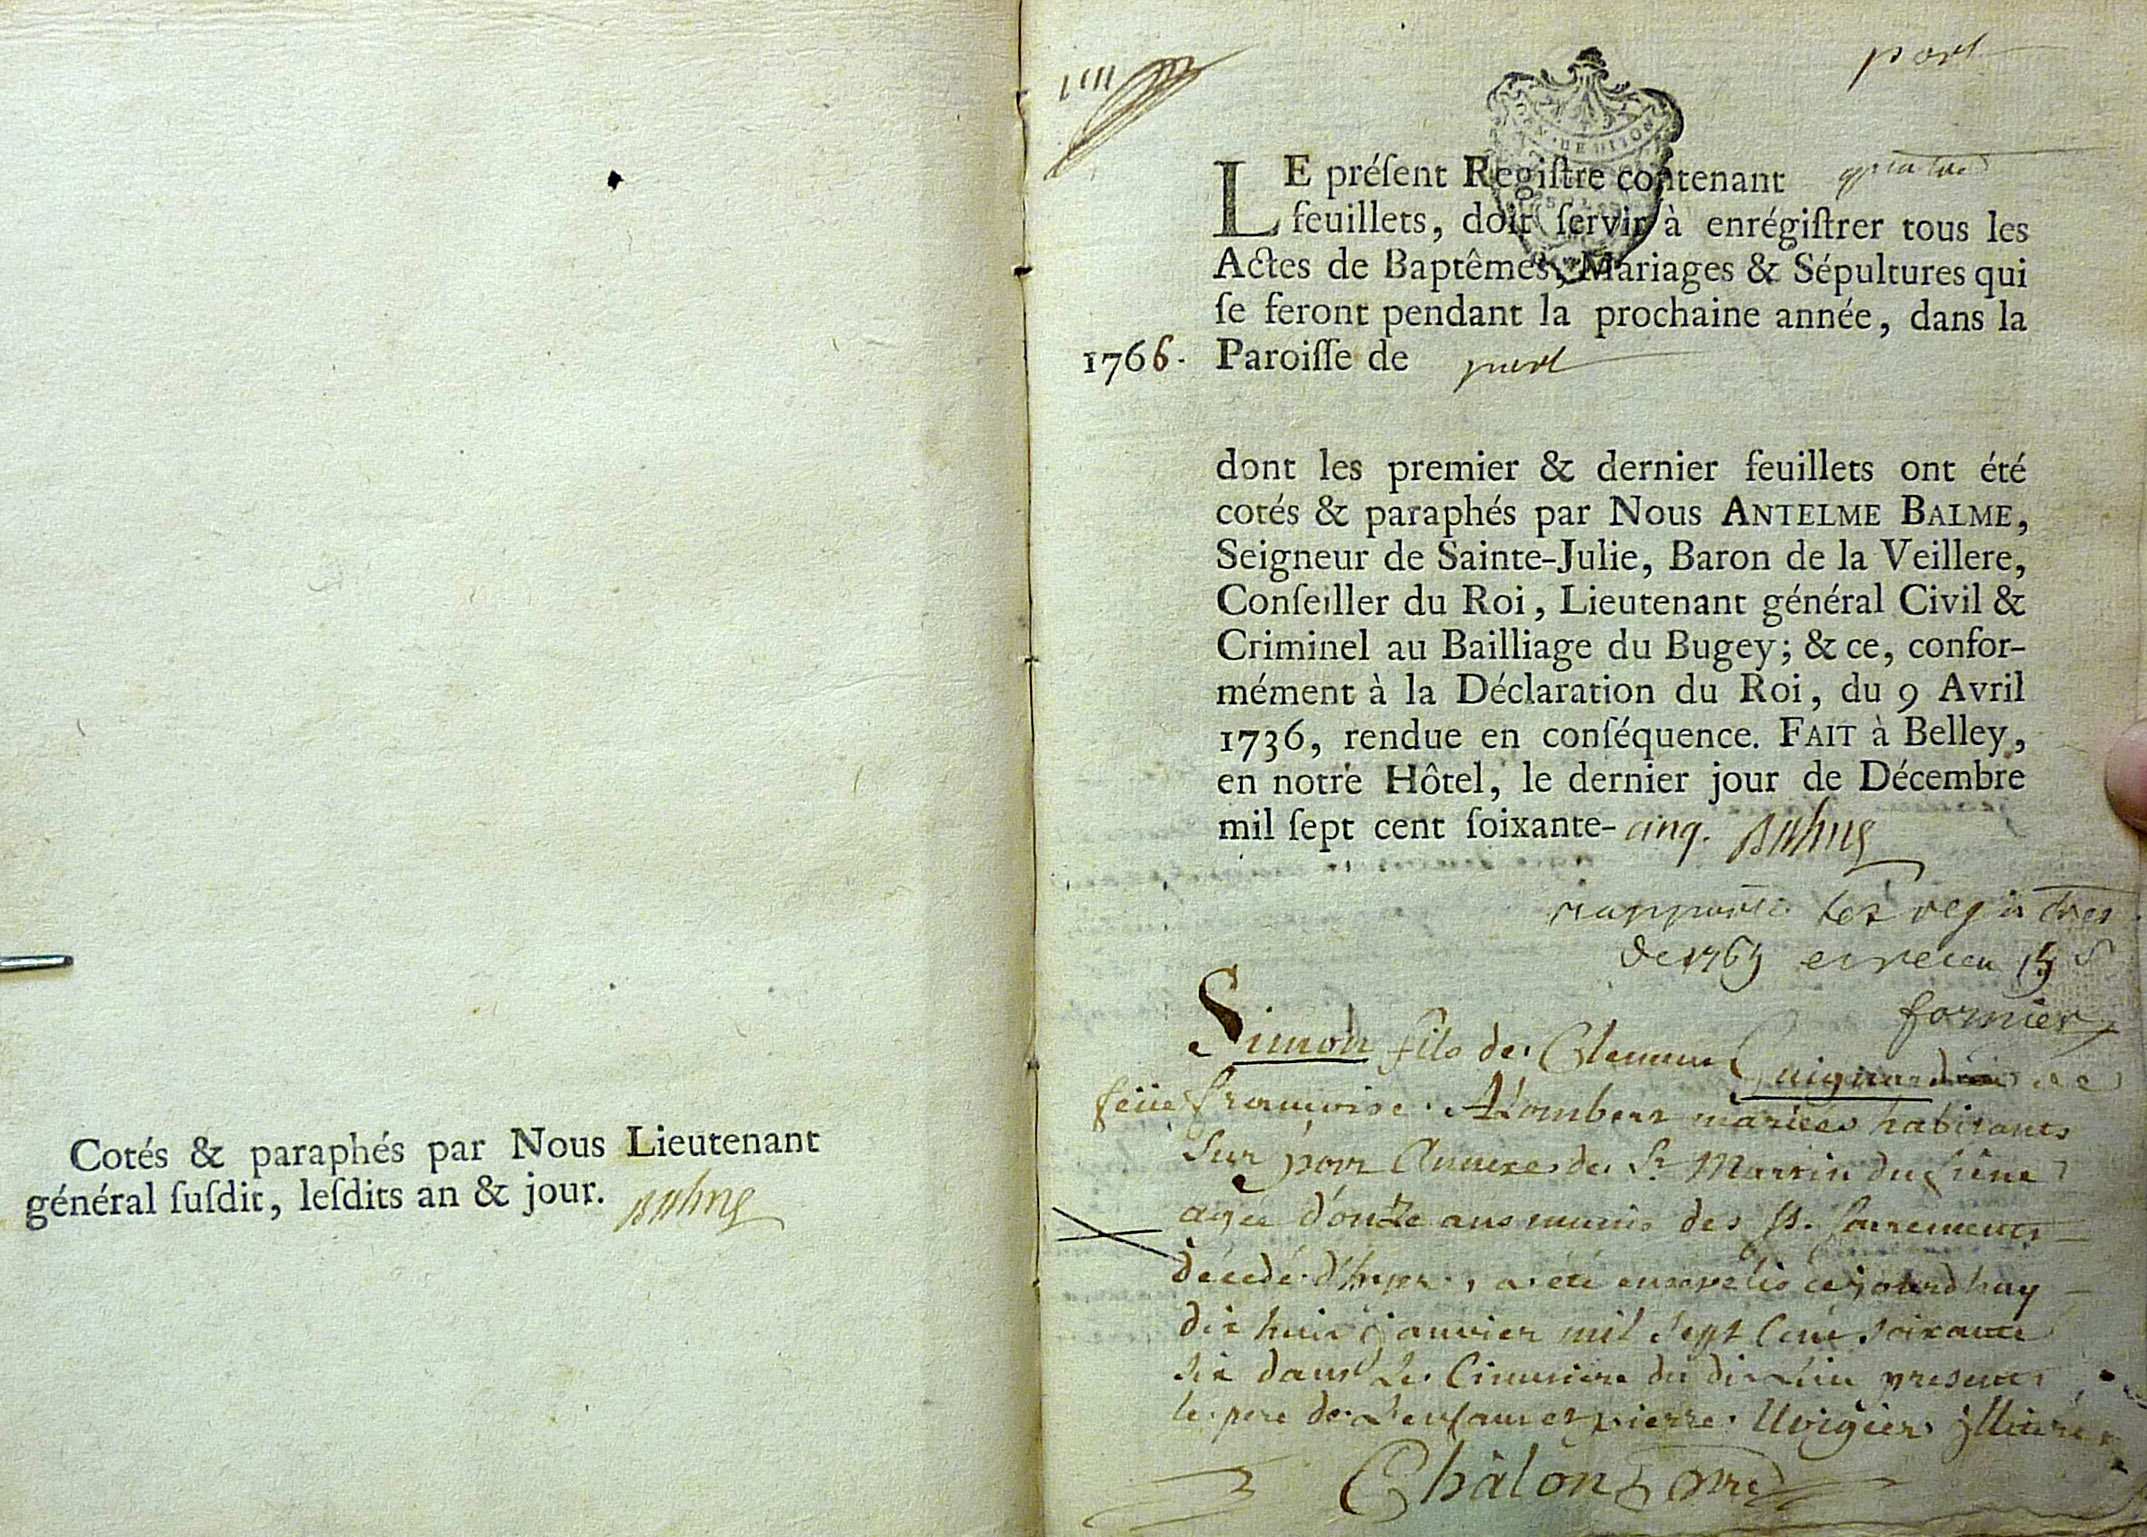 Cotés & paraphés par Nous Lieutenant
général ſuſdit, leſdits an & jour.
port
LE préſent Regiſtre contenant quatre
feuillets, doit ſervir à enrégiſtrer tous les
Actes de Baptêmes, Mariages & Sépultures qui
ſe feront pendant la prochaine année, dans la
1766. Paroiſſe de port
dont les premier & dernier feuillets ont été
cotés & paraphés par Nous ANTELME BALME,
Seigneur de Sainte-Julie, Baron de la Veillere,
Conſeiller du Roi, Lieutenant général Civil &
Criminel au Bailliage du Bugey; & ce, confor-
mément à la Déclaration du Roi, du 9 Avril
1736, rendue en conſéquence. FAIT à Belley,
en notre Hôtel, le dernier jour de Décembre
mil ſept cent ſoixante- cinq. Balme
rapporté les registres
de 1765 et receu 15 s
fornier
Simon fils de Clement Guignard et de
feüe francoise Alombert mariés habitants
Sur port Annexe de St Martin du frene
agée d'onze ans munis des SS. Sacrements
décédé d'hyer, a été ensevelis cejourdhuy
dix huit janvier mil Sept Cent Soixante
Six dans Le Cimetière du dit Lieu presents
le pere de L'enfant et pierre illitéré
Châlon